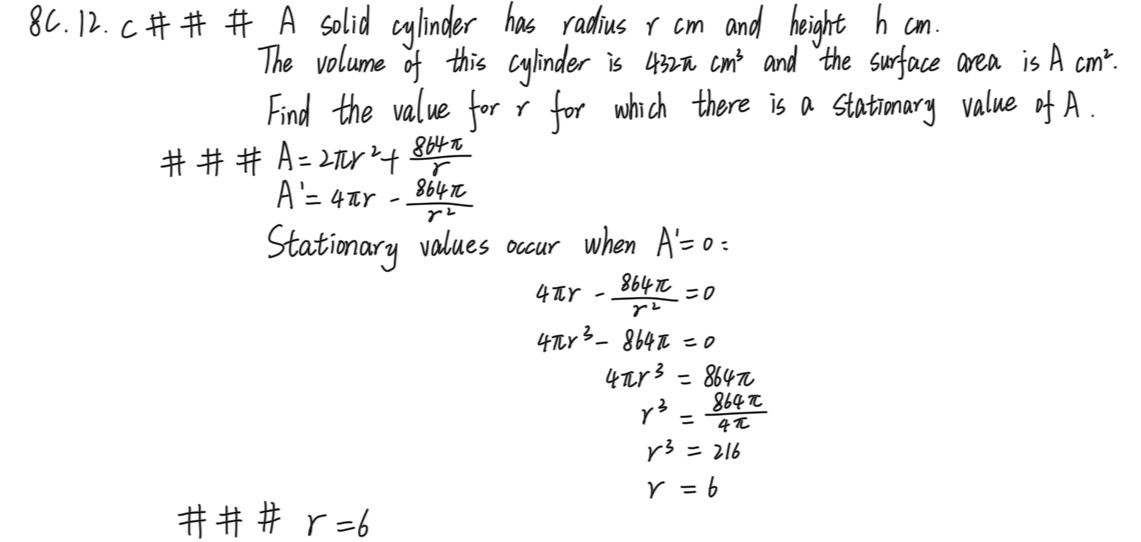 8C.12. c # # # A solid cylinder has radius r cm and height h cm.
The volume of this cylinder is 432π cm³ and the surface area is A cm².
Find the value for r for which there is a stationary value of A.
# # # A = 2πr² + 864π/r
A' = 4πr - 864π/r²
Stationary values occur when A' = 0:
4πr - 864π/r² = 0
4πr³ - 864π = 0
4πr³ = 864π
r³ = 864π/4π
r³ = 216
r = 6
# # # r = 6